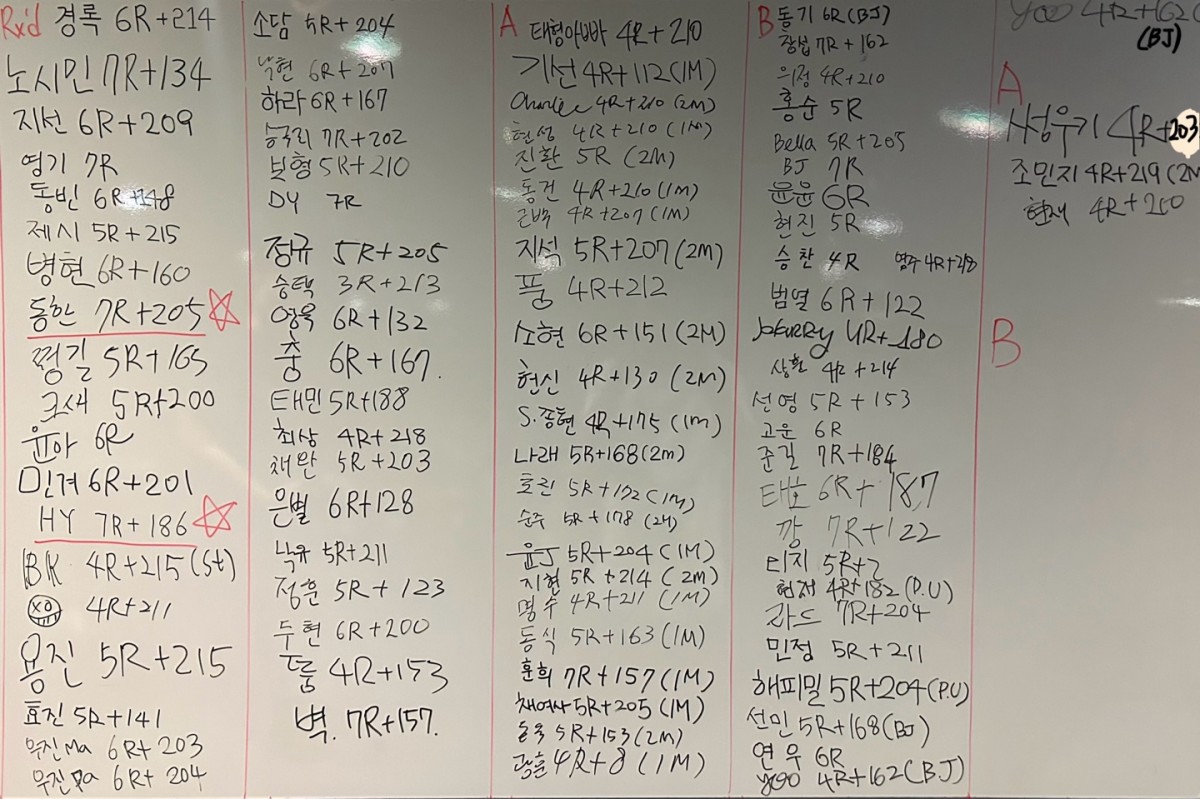 Rx'd 경록 6R+214
노시민 7R+134
지선 6R+209
영기 7R
동빈 6R+148
제시 5R+215
병현 6R+160
동한 7R+205
쩡길 5R+165
5R+200
윤아 6R
민겨 6R+201
HY 7R+186
BK 4R+215(St)
XO 4R+211
용진 5R+215
효진 5R+141
우진Ma 6R+203
우진Pa 6R+204
소담 5R+204
낙현 6R+207
하라 6R+167
승국리 7R+202
보형 5R+210
DY 7R
정규 5R+205
승택 3R+213
영욱 6R+132
춤 6R+167.
태민 5R+188
최상 4R+218
채완 5R+203
은별 6R+128
낙규 5R+211
정훈 5R+123
두현 6R+200
툼 4R+153
벽. 7R+157.
A 태형아빠 4R+210
기선 4R+112(1M)
Charlee 4R+210(2m)
현성 4R+210(1M)
진환 5R (2M)
동건 4R+210(1M)
근백 4R+207(1M)
지석 5R+207(2m)
품 4R+212
소현 6R+151(2M)
현신 4R+130(2M)
S.종현 4R+175(1m)
나래 5R+168(2m)
효린 5R+172(1M)
순주 5R+178(2M)
윤J 5R+204(1M)
지현 5R+214(2m)
명수 4R+211(1M)
동식 5R+163(1M)
훈희 7R+157(1M)
채여사 5R+205(1M)
5R+153(2m)
광훈 4R+8(1M)
B 동기 6R(BJ)
장섭 7R+162
의정 4R+210
홍순 5R
Bella 5R+205
BJ 7R
윤윤 6R
현진 5R
승찬 4R 영주 4R+218
범열 6R+122
JoKURRY 4R+180
상훈 4R+214
선영 5R+153
고운 6R
준길 7R+184
태호 6R+187
깡 7R+122
티지 5R+2
현재 4R+182(P.U)
라드 7R+204
민정 5R+211
해피밀 5R+204(P.U)
선민 5R+168(BJ)
연우 6R
yoo 4R+162(BJ)
yoo 4R+162
(BJ)
A
사성우기 4R+203
조민지 4R+219(2M
현재 4R+210
B